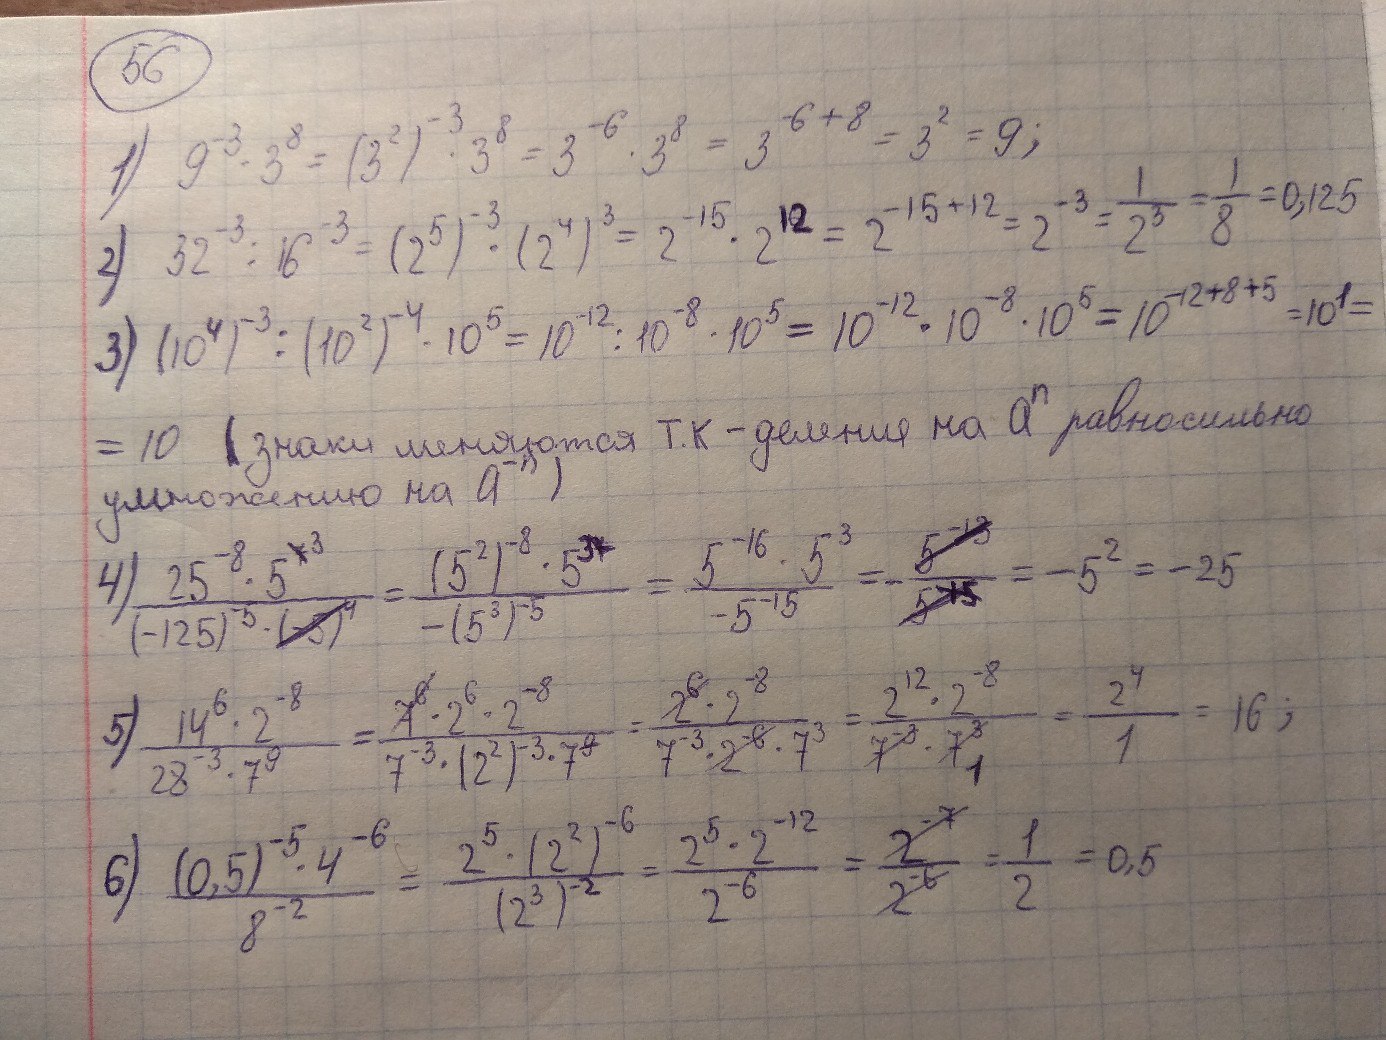 56
1) 9^{-3} · 3^8 = (3^2)^{-3} · 3^8 = 3^{-6} · 3^8 = 3^{-6+8} = 3^2 = 9;
2) 32^{-3} : 16^{-3} = (2^5)^{-3} · (2^4)^3 = 2^{-15} · 2^{12} = 2^{-15+12} = 2^{-3} = \frac{1}{2^3} = \frac{1}{8} = 0,125
3) (10^4)^{-3} : (10^2)^{-4} · 10^5 = 10^{-12} : 10^{-8} · 10^5 = 10^{-12} · 10^{-8} · 10^5 = 10^{-12+8+5} = 10^1 =
= 10 (знаки меняются т.к - деление на a^n равносильно
умножению на a^{-n})
4) \frac{25^{-8} · 5^3}{(-125)^{-5} · (-5)^4} = \frac{(5^2)^{-8} · 5^3}{-(5^3)^{-5}} = \frac{5^{-16} · 5^3}{-5^{-15}} = -\frac{5^{-13}}{5^{-15}} = -5^2 = -25
5) \frac{14^6 · 2^{-8}}{28^{-3} · 7^9} = \frac{7^6 · 2^6 · 2^{-8}}{7^{-3} · (2^2)^{-3} · 7^9} = \frac{2^6 · 2^{-8}}{7^{-3} · 2^{-6} · 7^3} = \frac{2^{12} · 2^{-8}}{7^{-3} · 7^3} = \frac{2^4}{1} = 16;
6) \frac{(0,5)^{-5} · 4^{-6}}{8^{-2}} = \frac{2^5 · (2^2)^{-6}}{(2^3)^{-2}} = \frac{2^5 · 2^{-12}}{2^{-6}} = \frac{2^{-7}}{2^{-6}} = \frac{1}{2} = 0,5